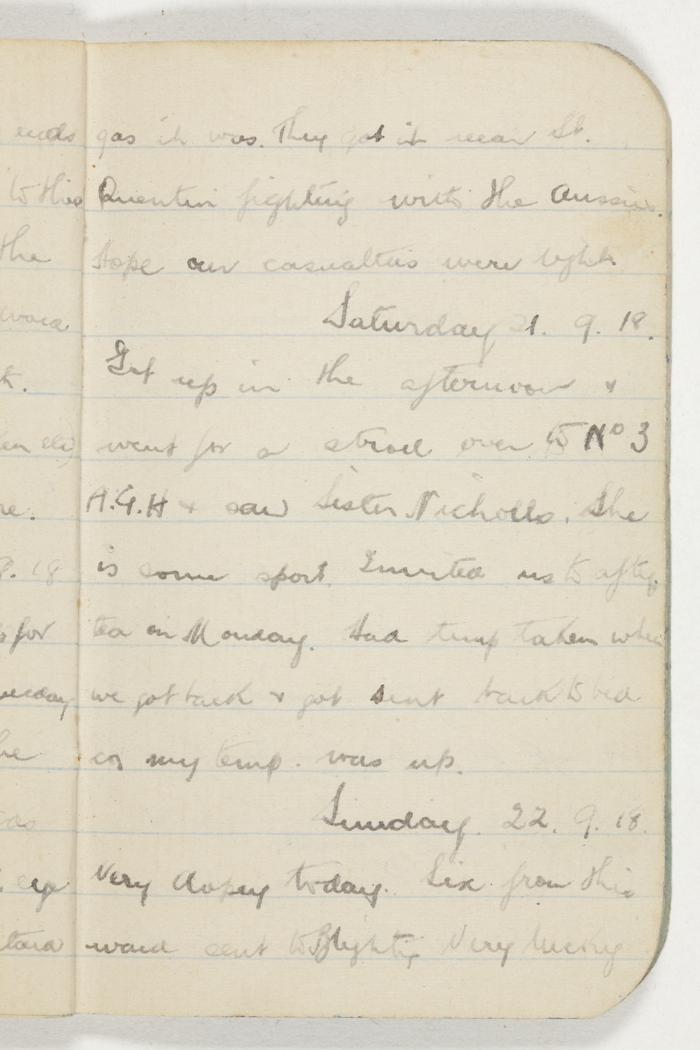 ends
to this
the
k.
re.
9. 18
s for
he
gas it was. They got it near St.
Quentin fighting with the Aussies.
Hope our casualties were light.
Saturday 21. 9. 18.
Got up in the afternoon &
went for a stroll over to No 3
A.G.H & saw Sister Nicholls. She
is some sport. Invited us to aftn
tea on Monday. Had temp taken when
we got back & got sent back to bed
cos my temp. was up.
Sunday. 22. 9. 18.
Very dopey today. Six from this
ward sent to Blighty Very lucky